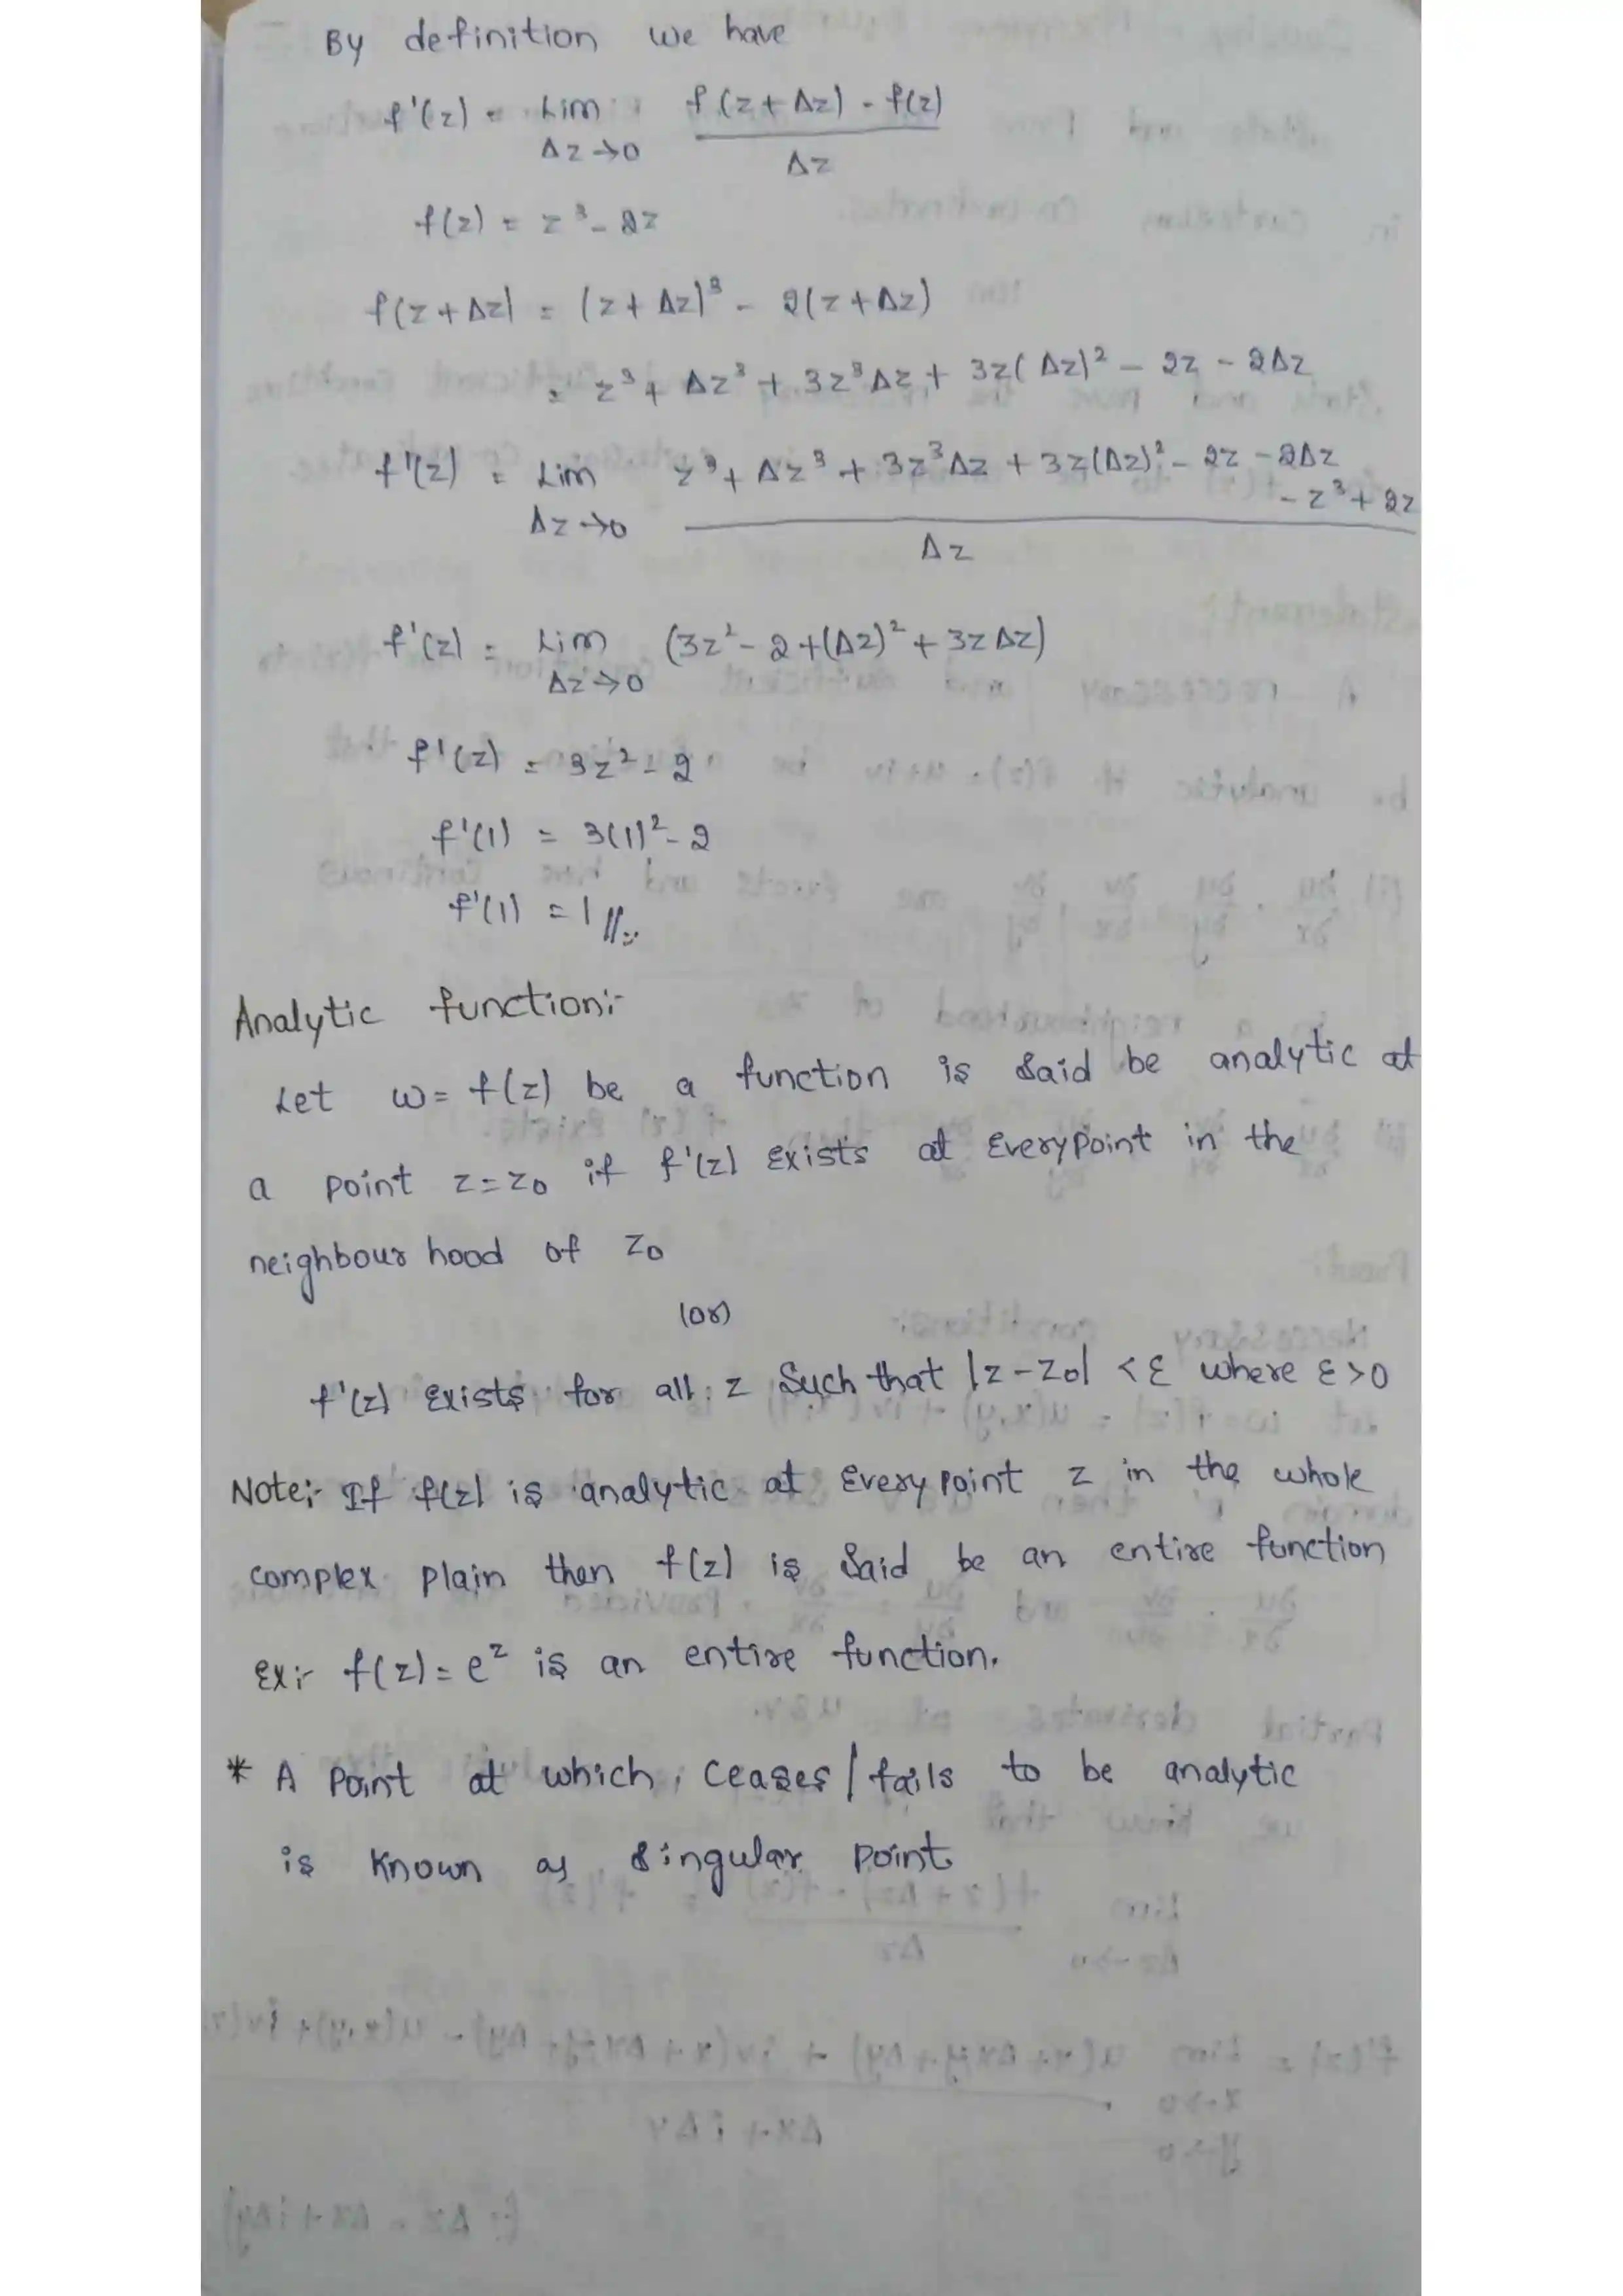 By definition we have
f'(z) = Lim f(z+Δz) - f(z)
Δz→0 Δz
f(z) = z³ - 2z
f(z+Δz) = (z+Δz)³ - 2(z+Δz)
= z³ + Δz³ + 3z³Δz + 3z(Δz)² - 2z - 2Δz
f'(z) = Lim z³ + Δz³ + 3z³Δz + 3z(Δz)² - 2z - 2Δz
- z³ + 2z
Δz→0 Δz
f'(z) = Lim (3z² - 2 + (Δz)² + 3zΔz)
Δz→0
f'(z) = 3z² - 2
f'(1) = 3(1)² - 2
f'(1) = 1 //
Analytic function:-
Let w = f(z) be a function is said be analytic at
a point z = z0 if f'(z) exists at Everypoint in the
neighbour hood of z0
(or)
f'(z) exists for all z Such that |z - z0| < ε where ε > 0
Note:- If f(z) is analytic at Every point z in the whole
complex plain then f(z) is Said be an entire function
Ex:- f(z) = e^z is an entire function.
* A Point at which, ceases / fails to be analytic
is known as singular point